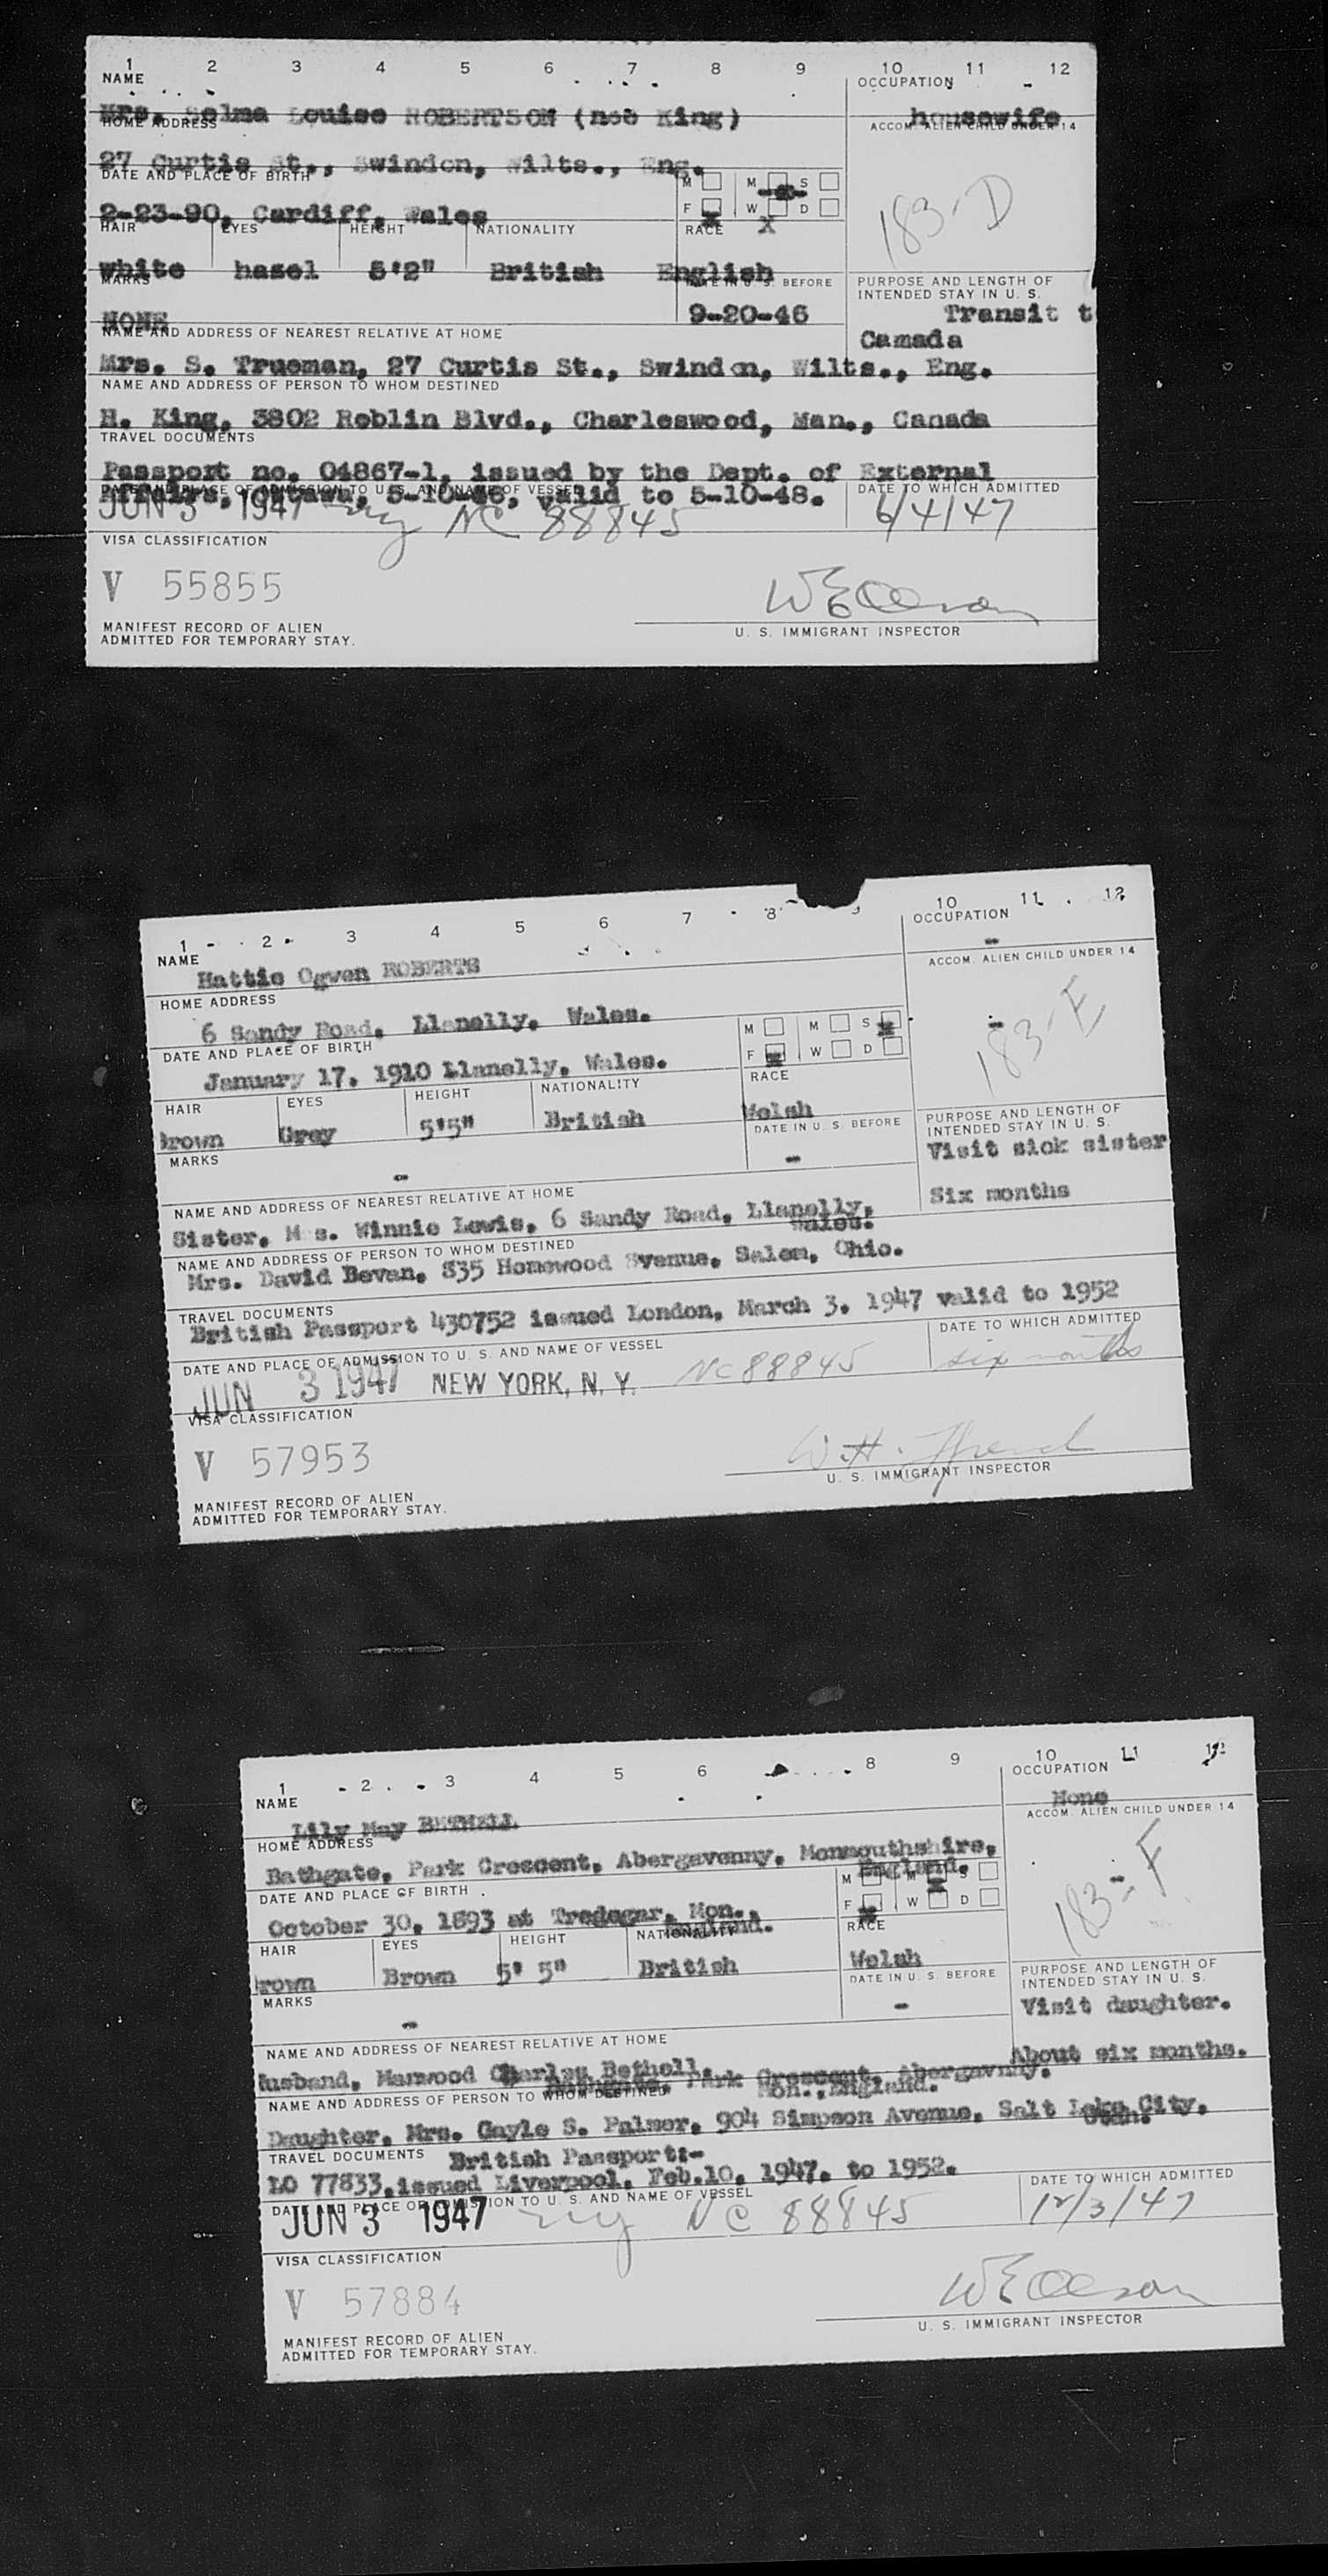 1 2 3 4 5 6 7 8 9 10 11 12
NAME OCCUPATION
Mrs. Selma Louise ROBERTSON (neé King) housewife
HOME ADDRESS ACCOM. ALIEN CHILD UNDER 14
27 Curtis St., Swindon, Wilts., Eng.
DATE AND PLACE OF BIRTH M M S
2-23-90, Cardiff, Wales F W D
183-D
HAIR EYES HEIGHT NATIONALITY RACE X
white hazel 5'2" British English
MARKS DATE IN U. S. BEFORE PURPOSE AND LENGTH OF
INTENDED STAY IN U. S.
NONE 9-20-46 Transit t
NAME AND ADDRESS OF NEAREST RELATIVE AT HOME Canada
Mrs. S. Trueman, 27 Curtis St., Swindon, Wilts., Eng.
NAME AND ADDRESS OF PERSON TO WHOM DESTINED
H. King, 3802 Roblin Blvd., Charleswood, Man., Canada
TRAVEL DOCUMENTS
Passport no. 04867-1, issued by the Dept. of External
Affairs, Ottawa, 5-10-46, valid to 5-10-48.
DATE AND PLACE OF ADMISSION TO U. S. AND NAME OF VESSEL DATE TO WHICH ADMITTED
JUN 3 1947 ny NC 88845 6/4/47
VISA CLASSIFICATION
V 55855
WE Olson
MANIFEST RECORD OF ALIEN U. S. IMMIGRANT INSPECTOR
ADMITTED FOR TEMPORARY STAY.
1 2 3 4 5 6 7 8 9 10 11 12
NAME OCCUPATION
Hattie Ogwen ROBERTS -
HOME ADDRESS ACCOM. ALIEN CHILD UNDER 14
6 Sandy Road, Llanelly, Wales. -
DATE AND PLACE OF BIRTH M M S
January 17, 1910 Llanelly, Wales. F W D
183-E
HAIR EYES HEIGHT NATIONALITY RACE
brown Grey 5'5" British Welsh
MARKS DATE IN U. S. BEFORE PURPOSE AND LENGTH OF
INTENDED STAY IN U. S.
- - Visit sick sister
NAME AND ADDRESS OF NEAREST RELATIVE AT HOME Six months
Sister, M s. Winnie Lewis, 6 Sandy Road, Llanelly,
Wales.
NAME AND ADDRESS OF PERSON TO WHOM DESTINED
Mrs. David Bevan, 835 Homewood Avenue, Salem, Ohio.
TRAVEL DOCUMENTS
British Passport 430752 issued London, March 3, 1947 valid to 1952
DATE AND PLACE OF ADMISSION TO U. S. AND NAME OF VESSEL DATE TO WHICH ADMITTED
JUN 3 1947 NEW YORK, N. Y. NC 88845 six months
VISA CLASSIFICATION
V 57953
W.H.
MANIFEST RECORD OF ALIEN U. S. IMMIGRANT INSPECTOR
ADMITTED FOR TEMPORARY STAY.
1 2 3 4 5 6 8 9 10 11 12
NAME OCCUPATION
Lily May BETHELL None
HOME ADDRESS ACCOM. ALIEN CHILD UNDER 14
Bathgate, Park Crescent, Abergavenny, Monmouthshire,
England.
DATE AND PLACE OF BIRTH M M S
October 30, 1893 at Tredegar, Mon., F W D
England.
183-F
HAIR EYES HEIGHT NATIONALITY RACE
brown Brown 5' 5" British Welsh
MARKS DATE IN U. S. BEFORE PURPOSE AND LENGTH OF
INTENDED STAY IN U. S.
- - Visit daughter.
NAME AND ADDRESS OF NEAREST RELATIVE AT HOME About six months.
Husband, Manwood Charles Bethell,
Bathgate, Park Crescent, Abergavnny.
Mon., England.
NAME AND ADDRESS OF PERSON TO WHOM DESTINED
Daughter, Mrs. Gayle S. Palmer, 904 Simpson Avenue, Salt Lake City,
Utah.
TRAVEL DOCUMENTS British Passport:-
LO 77833, issued Liverpool, Feb.10, 1947. to 1952.
DATE AND PLACE OF ADMISSION TO U. S. AND NAME OF VESSEL DATE TO WHICH ADMITTED
JUN 3 1947 ny NC 88845 12/3/47
VISA CLASSIFICATION
V 57884
WE Olson
MANIFEST RECORD OF ALIEN U. S. IMMIGRANT INSPECTOR
ADMITTED FOR TEMPORARY STAY.